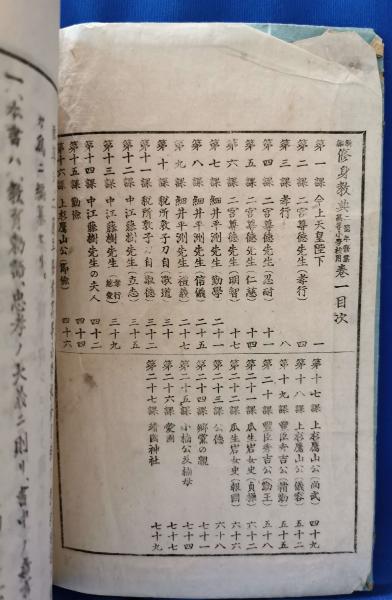 新編 修身教典 高等小學校用 卷一目次
第一課 今上天皇陛下 一
第二課 二宮尊德先生(孝行) 四
第三課 孝行 八
第四課 二宮尊德先生(忍耐) 十一
第五課 二宮尊德先生(仁慈) 十四
第六課 二宮尊德先生(明智) 十七
第七課 細井平洲先生 勤學 二十一
第八課 細井平洲先生(信儀) 二十四
第九課 細井平洲先生(禮義) 二十七
第十課 税所敦子刀自(歌道) 三十一
第十一課 税所敦子刀自(報德) 三十二
第十二課 中江藤樹先生(立志) 三十五
第十三課 中江藤樹先生(孝行 慈愛) 三十九
第十四課 中江藤樹先生の夫人 四十二
第十五課 勤儉 四十四
第十六課 上杉鷹山公(節儉) 四十六
第十七課 上杉鷹山公(尚武) 四十九
第十八課 上杉鷹山公(儀容) 五十二
第十九課 豐臣秀吉公(精勤) 五十五
第二十課 豐臣秀吉公(勤王) 五十八
第二十一課 瓜生岩女史(貞操) 六十二
第二十二課 瓜生岩女史(報國) 六十六
第二十三課 公德 六十八
第二十四課 鄉黨の親 七十一
第二十五課 小楠公及楠母 七十四
第二十六課 愛國 七十七
第二十七課 靖國神社 七十九
一 本書ハ教育勅語、忠孝ノ大義ニ則リ